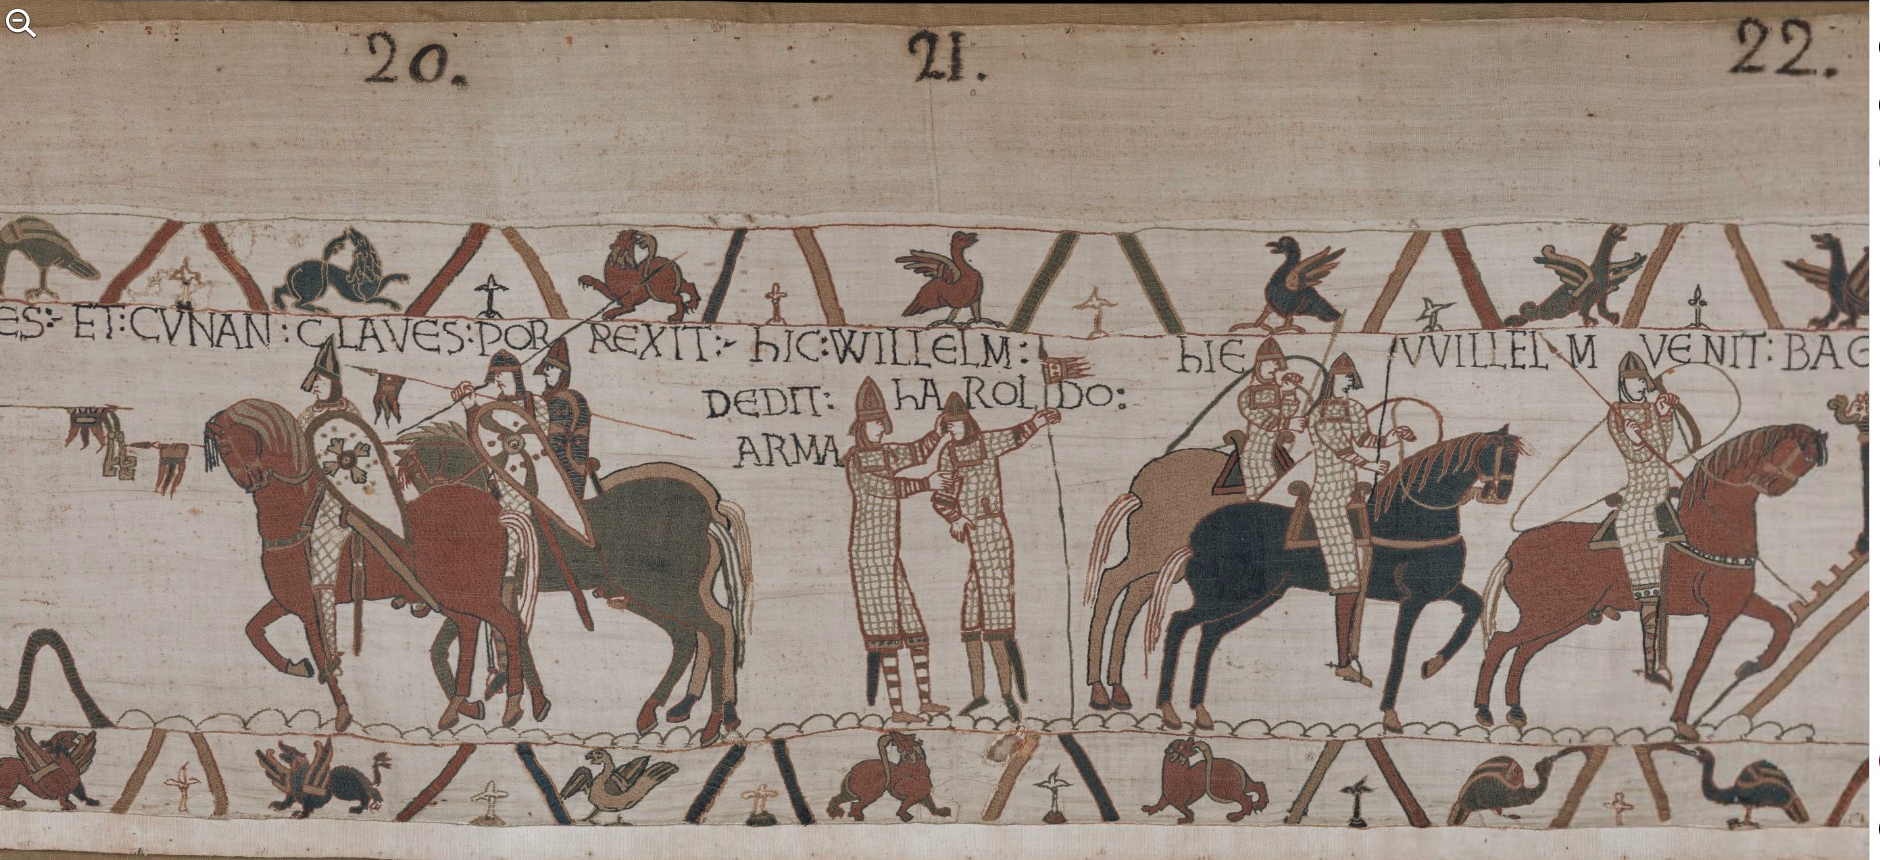 20. 21. 22.
ES:- ET:CVNAN:CLAVES:POR REXIT:- hIC:WILLELM: hIE VVILLELM VENIT: BAG
DEDIT: hAROLDO:
ARMA